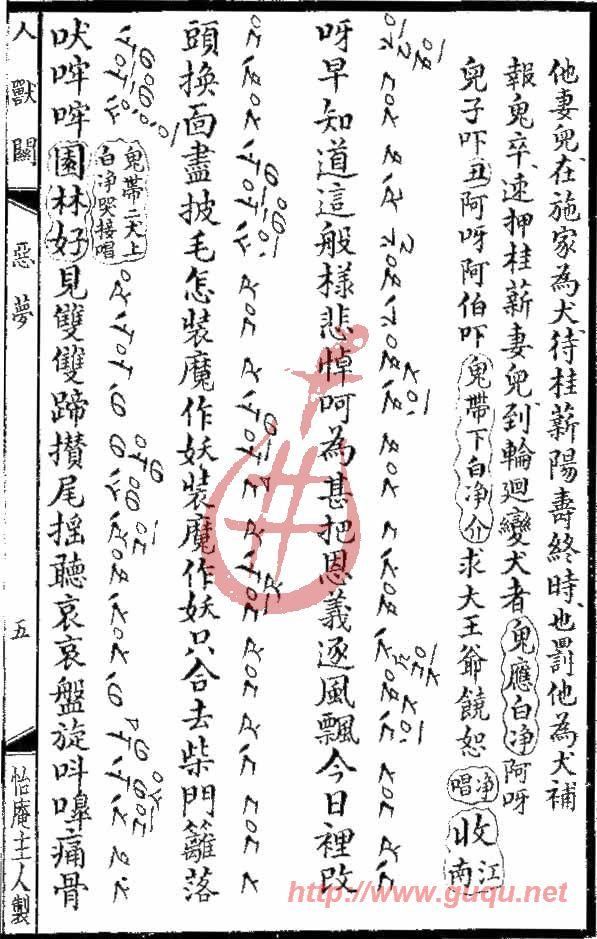 他妻兒在施家為犬待桂薪陽壽終時也罰他為犬補
報鬼卒速押桂薪妻兒到輪廻變犬者鬼應白净阿呀
兒子吓丑阿呀阿伯吓鬼帶下白净介求大王爺饒恕净唱收江南
呀早知道這般樣悲悼呵為甚把恩義逐風飄今日裡改
頭換面盡披毛怎裝魔作妖裝魔作妖只合去柴門籬落
吠哰哰鬼帶二犬上白净哭接唱園林好見雙雙蹄攅尾揺聽哀哀盤旋呌嘷痛骨
人獸關
惡夢
五
怡庵主人製
http://www.guqu.net